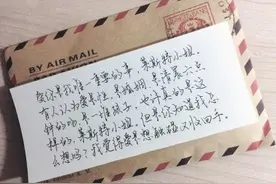 BY AIR MAIL
PAR AVION
爱你是我唯一重要的事,莱斯特小姐。
有人认为爱是性,是婚姻,是清晨六点
钟的吻,是一堆孩子,也许真的是这
样的,莱斯特小姐。但你知道我怎
么想吗?我觉得爱是想触碰又收回手。